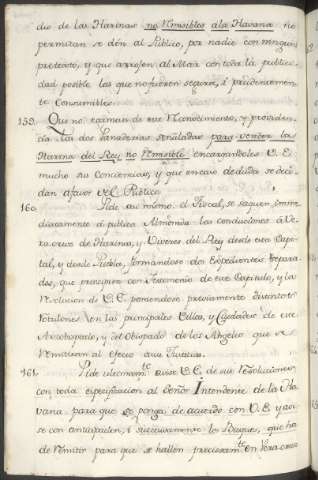 dio de las Harinas no Remisibles a la Havana no
permitan se dén al Público, por nadie con ningun
pretexto, y que arrojen al Mar con toda la publici-
dad posible las que no fueren seguras, i prudencialmen
te Consumibles.
159. Que no eximan de este Reconocimiento, y providen
cia las dos Panaderias señaladas para vender la
Harina del Rey no Remisible encargandoles V. E.
mucho sus Conciencias, y que en caso de duda se deci-
dan a favor del Público.
160. Pide asimismo el Fiscal, se saquen inme
diatamente á publica Almoneda las conducciones á Ve-
racruz de Harinas, y Viveres del Rey desde esta Capi-
tal, y desde Puebla, formandose dos Expedientes separa
dos, que principien con Testimonio de este Capitulo, y la
Resolucion de V. E. poniendose previamente distintos
rotulones en las principales Villas, y Ciudades de este
Arzobispado, y del Obispado de los Angeles que se
Remitiran al efecto a sus Justicias.
161. Pide ultimamte. avise V. E. de sus resoluciones
con toda especificacion al Señor Intendente de la Ha-
vana para que se ponga de acuerdo con V. E. y avi-
se con anticipacion, i succesivamente los Buques, que ha
de remitir para que se hallen precisamte. en Vera cruz